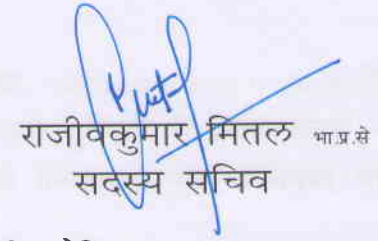 राजीवकुमार मितल भा.प्र.से
सदस्य सचिव